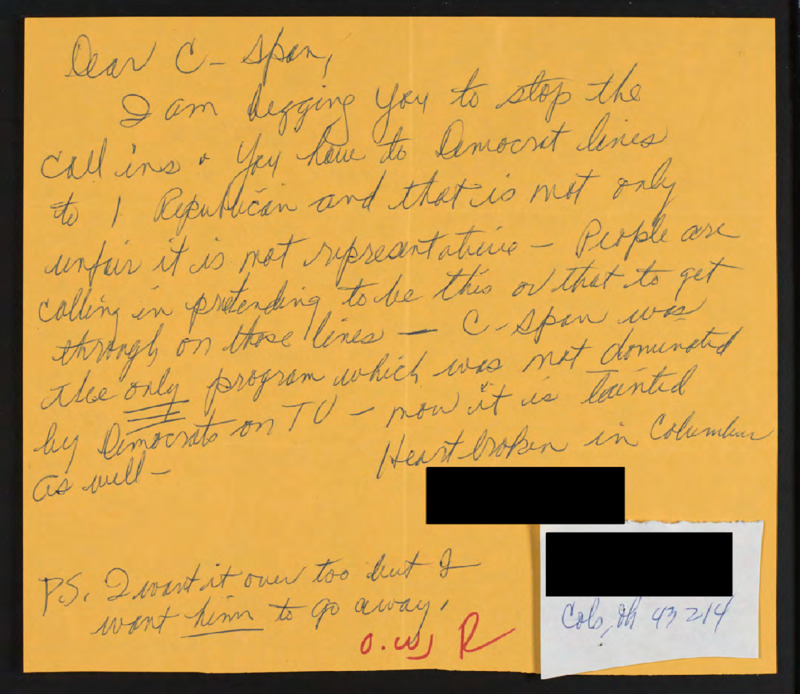 Dear C-Span,
I am begging you to stop the
call ins. You have to Democrat lines
to 1 Republican and that is not only
unfair it is not representative - People are
calling in pretending to be this or that to get
through on those lines — C-Span was
the only program which was not dominated
by Democrats on TV - now it is tainted
as well -
Heart broken in Columbus
P.S. I want it over too but I
want him to go away.
O.W. R
Cols, Oh 43214